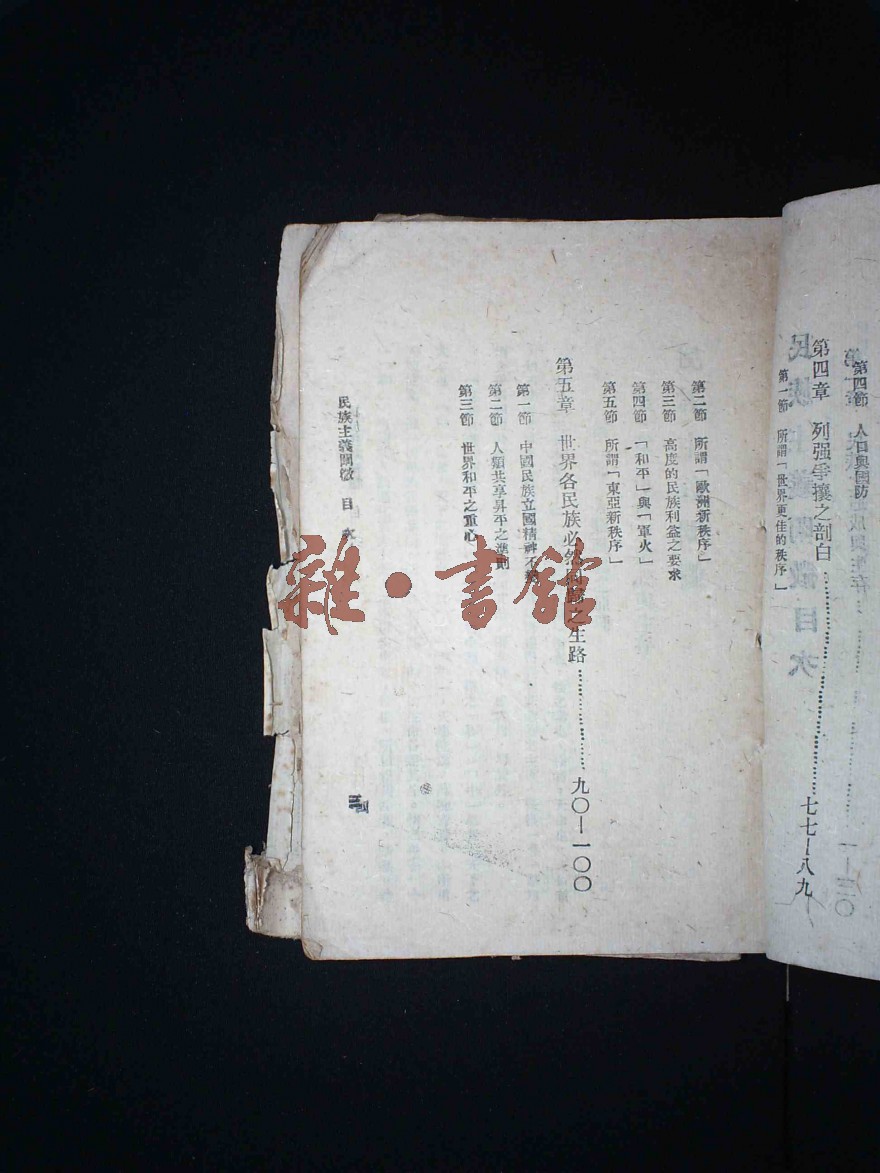 第四節 人口與國防
第四章 列强爭攘之剖白 七七—八九
第一節 所謂「世界更佳的秩序」
第二節 所謂「歐洲新秩序」
第三節 高度的民族利益之要求
第四節 「和平」與「軍火」
第五節 所謂「東亞新秩序」
第五章 世界各民族必然同歸之生路 九〇—一〇〇
第一節 中國民族立國精神不
第二節 人類共享昇平之準則
第三節 世界和平之重心
民族主義闡微 目次
雜·書館